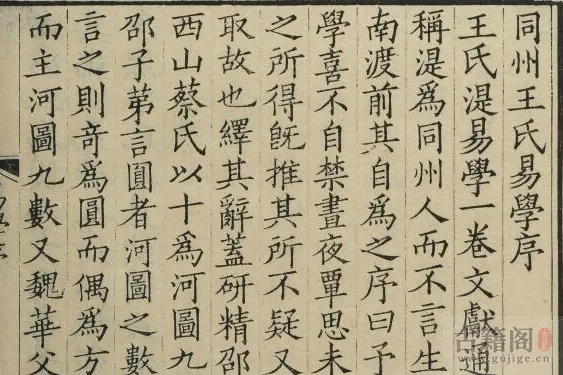 同州王氏易學序
王氏湜易學一卷文獻通
稱湜為同州人而不言生
南渡前其自為之序曰予
學喜不自禁晝夜覃思未
之所得旣推其所不疑又
取故也繹其辭蓋研精邵
西山蔡氏以十為河圖九
邵子苐言圓者河圖之數
言之則竒為圓而偶為方
而主河圖九數又魏華父
古籍阁
www.gujige.cn